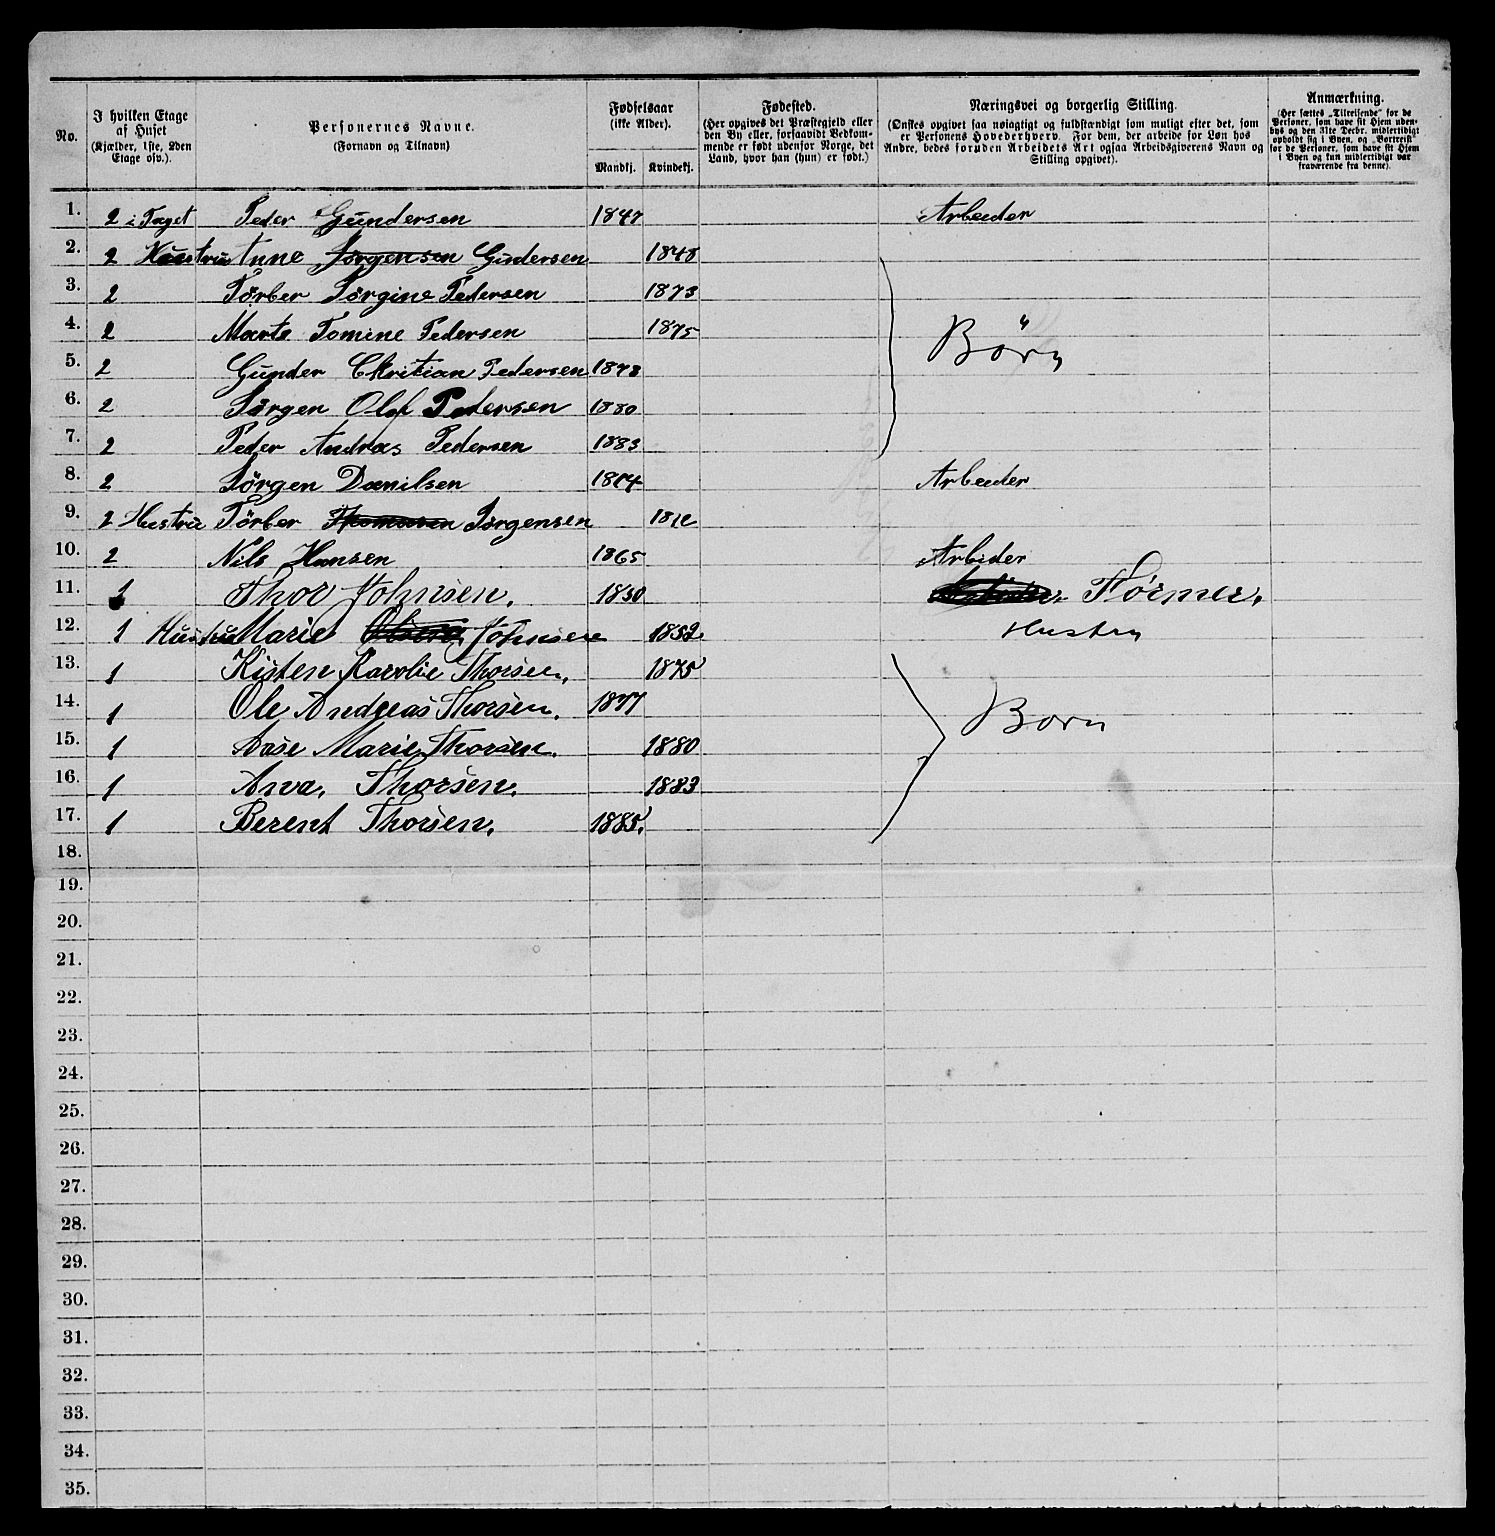 No.
I hvilken Etage af Huset (Kjælder, 1ste, 2den Etage osv.).
Personernes Navne. (Fornavn og Tilnavn)
Fødselsaar (ikke Alder).
Mandkj. Kvindekj.
Fødested. (Her opgives det Præstegjeld eller den By eller, forsaavidt Vedkommende er født udenfor Norge, det Land, hvor han (hun) er født.)
Næringsvei og borgerlig Stilling. (Ønskes opgivet saa nøiagtigt og fuldstændigt som muligt efter det, som er Personens Hovederhverv. For dem, der arbeide for Løn hos Andre, bedes foruden Arbeidets Art ogsaa Arbeidsgiverens Navn og Stilling opgivet).
Anmærkning. (Her sættes „Tilreisende" for de Personer, som have sit Hjem udenbys og den 31te Decbr. midlertidigt opholdt sig i Byen, og „Bortreist" for de Personer, som have sit Hjem i Byen og kun midlertidigt var fraværende fra denne).
1. 2 i Taget Peder Gundersen 1847 Arbeider
2. 2 Hustru Anne Jørgensen Gudersen 1848
3. 2 Tørber Jørgine Pedersen 1873
4. 2 Marte Tomine Pedersen 1875 Börn
5. 2 Gunder Christian Pedersen 1878
6. 2 Jørgen Olaf Pedersen 1880
7. 2 Peder Andras Pedersen 1883
8. 2 Jörgen Danilsen 1814 Arbeider
9. 2 Hustru Tørber Jørgensen
10. 2 Nils Hansen 1865 Arbeider
11. 1 Thor Johnsen. 1850 Flörmer.
12. 1 Hustru Marie Johnsen 1852. Hustru
13. 1 Kisten Karolie Thorsen. 1875
14. 1 Ole Andreas Thorsen. 1877 Born
15. 1 Aase Marie Thorsen. 1880
16. 1 Anva. Thorsen. 1883
17. 1 Berent Thorsen. 1885.
18.
19.
20.
21.
22.
23.
24.
25.
26.
27.
28.
29.
30.
31.
32.
33.
34.
35.